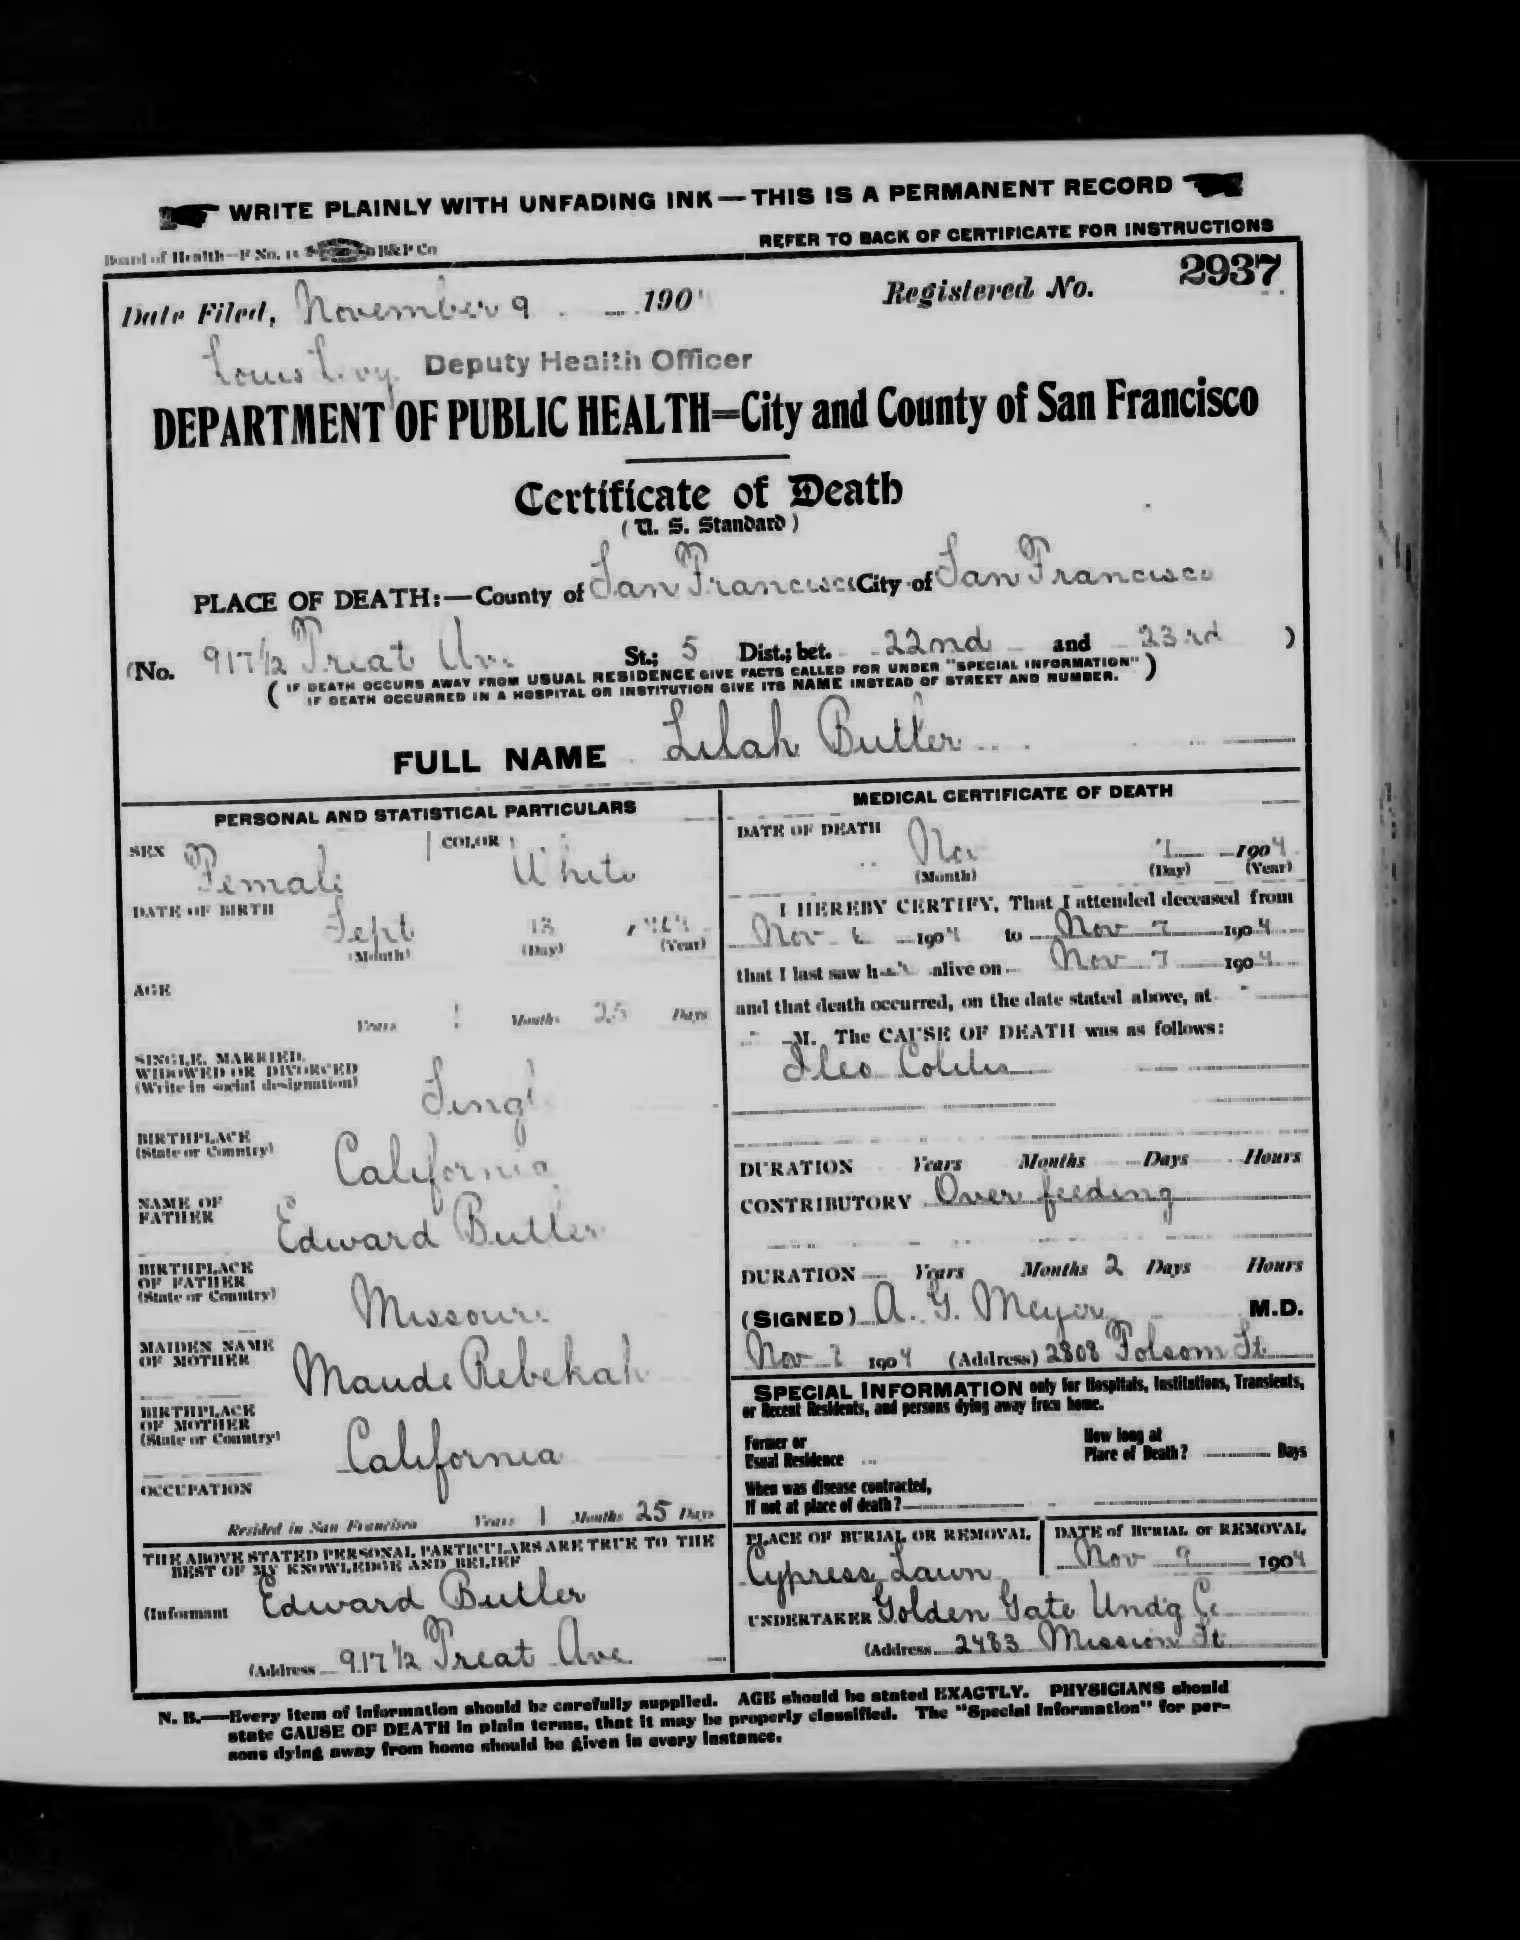 WRITE PLAINLY WITH UNFADING INK — THIS IS A PERMANENT RECORD
Board of Health—F No. B&P Co
REFER TO BACK OF CERTIFICATE FOR INSTRUCTIONS
Date Filed, November 9 190 Registered No. 2937
Louis Levy Deputy Health Officer
DEPARTMENT OF PUBLIC HEALTH=City and County of San Francisco
Certificate of Death
(U. S. Standard)
PLACE OF DEATH:—County of San Francisco City of San Francisco
(No. 917½ Treat Ave St.; 5 Dist.; bet. 22nd and 23rd )
( IF DEATH OCCURS AWAY FROM USUAL RESIDENCE GIVE FACTS CALLED FOR UNDER "SPECIAL INFORMATION" )
IF DEATH OCCURRED IN A HOSPITAL OR INSTITUTION GIVE ITS NAME INSTEAD OF STREET AND NUMBER.
FULL NAME Lilah Butler
PERSONAL AND STATISTICAL PARTICULARS
SEX Female COLOR White
DATE OF BIRTH Sept 13
(Month) (Day) (Year)
AGE
Years 1 Months 25 Days
SINGLE, MARRIED,
WIDOWED OR DIVORCED
(Write in social designation) Single
BIRTHPLACE
(State or Country) California
NAME OF
FATHER Edward Butler
BIRTHPLACE
OF FATHER
(State or Country) Missouri
MAIDEN NAME
OF MOTHER Maude Rebekah
BIRTHPLACE
OF MOTHER
(State or Country) California
OCCUPATION
Resided in San Francisco Years 1 Months 25 Days
THE ABOVE STATED PERSONAL PARTICULARS ARE TRUE TO THE
BEST OF MY KNOWLEDGE AND BELIEF
(Informant Edward Butler
(Address 917½ Treat Ave
MEDICAL CERTIFICATE OF DEATH
DATE OF DEATH Nov 7 1904
(Month) (Day) (Year)
I HEREBY CERTIFY, That I attended deceased from
Nov 6 1904 to Nov 7 1904
that I last saw her alive on Nov 7 1904
and that death occurred, on the date stated above, at
M. The CAUSE OF DEATH was as follows:
Ileo Colitis
DURATION Years Months Days Hours
CONTRIBUTORY Over feeding
DURATION Years Months 2 Days Hours
(SIGNED) A. G. Meyer M.D.
Nov 1904 (Address) 2808 Folsom St
SPECIAL INFORMATION only for Hospitals, Institutions, Transients,
or Recent Residents, and persons dying away from home.
Former or
Usual Residence
How long at
Place of Death? Days
When was disease contracted,
If not at place of death?
PLACE OF BURIAL OR REMOVAL
Cypress Lawn
DATE of BURIAL or REMOVAL
Nov 9 1904
UNDERTAKER Golden Gate Undg Co
(Address 2483 Mission St
N. B.—Every item of information should be carefully supplied. AGE should be stated EXACTLY. PHYSICIANS should
state CAUSE OF DEATH in plain terms, that it may be properly classified. The "Special Information" for per-
sons dying away from home should be given in every instance.